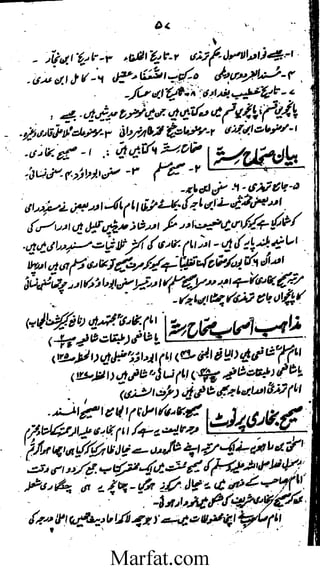 ۵۷
۱۔ جیسے نوادر الاصول حکیم ترمذی ۲۔ تاریخ الخلفاء ۳۔ تاریخ ابن نجار۔
۴۔ مسند الفردوس دیلمی ۵۔ کتاب الضعفاء عقیلی ۶۔ کامل ابن عدی۔
۷۔ تاریخ خطیب بغدادی ۸۔ تاریخ ابن عساکر۔
پانچویں قسم: پانچویں قسم میں وہ کتابیں ہیں جن میں موضوع حدیثیں ہیں۔ جیسے:
۱۔ موضوعات ابن جوزی ۲۔ موضوعات شیخ محمد طاہر ۳۔ موضوعات ملا علی قاری وغیرہ
بیان صحاح ستہ
صحاح ستہ ۶ کتابیں ہیں: ۱۔ صحیح بخاری۔
۲۔ صحیح مسلم ۳۔ سنن ابوداؤد ۴۔ سنن نسائی۔
۵۔ جامع ترمذی ۶۔ سنن ابن ماجہ۔
اور بعض محدثین نے ابن ماجہ کی بجائے مؤطا امام مالک اور بعض نے مسند دارمی
کو شمار کیا ہے کیونکہ اس میں ضعیف اور منکر اور شاذ حدیثیں قلیل ہیں اور اس کی
اسانید بلند پایہ کی ہیں۔ اور امام بخاری کی اکثر ثلاثیات مسند دارمی میں ہیں
اور ان ۶ کتابوں کو صحاح کہنا تغلیباً ہے کیونکہ صرف صحیح تو بخاری و مسلم ہی ہیں اور پہلا
مرتبہ صحیح بخاری کا ہے اور دوسرا صحیح مسلم کا اور تیسرا سنن ابوداؤد کا اور چوتھا سنن نسائی
کا پانچواں جامع ترمذی کا چھٹا ابن ماجہ کا۔
مذاہب اصحاب صحاح ستہ
امام بخاری مجتہد ہیں
یا شافعی (طبقات شافعیہ
امام مسلم شافعی ہیں (الیانع الجنی امام ابوداؤد حنبلی ہیں (الحطہ ۱۲۵)
یا شافعی (طبقات شافعیہ امام نسائی شافعی ہیں (الحطہ
امام ترمذی اور ابن ماجہ بھی شافعی ہیں (عرف الشذی)
صحیح بخاری پر نوٹ
صحیح بخاری کا اصل نام الجامع الصحیح المسند۔
وجہ تالیف یہ ہے کہ امام بخاری علیہ الرحمۃ کے استاد محترم
اسحق بن راہویہ نے ایک مرتبہ اپنے شاگردوں سے خیال ظاہر کیا کہ کیا ہی اچھا ہو اگر تم
رسول خدا صلی اللہ علیہ وسلم کی صحیح سنت میں ایک مختصر کتاب جمع کر دو اسی وقت
امام صاحب کے ذہن میں یہ خیال مرکوز ہو گیا۔ چنانچہ یہی چنگاری شعلہ
صحیح بخاری شریف کی شکل میں نمودار ہوئی۔
امام صاحب نے اپنی محفوظات میں سے (جو چھ لاکھ احادیث تھیں) اعلیٰ درجہ کی
Marfat.com